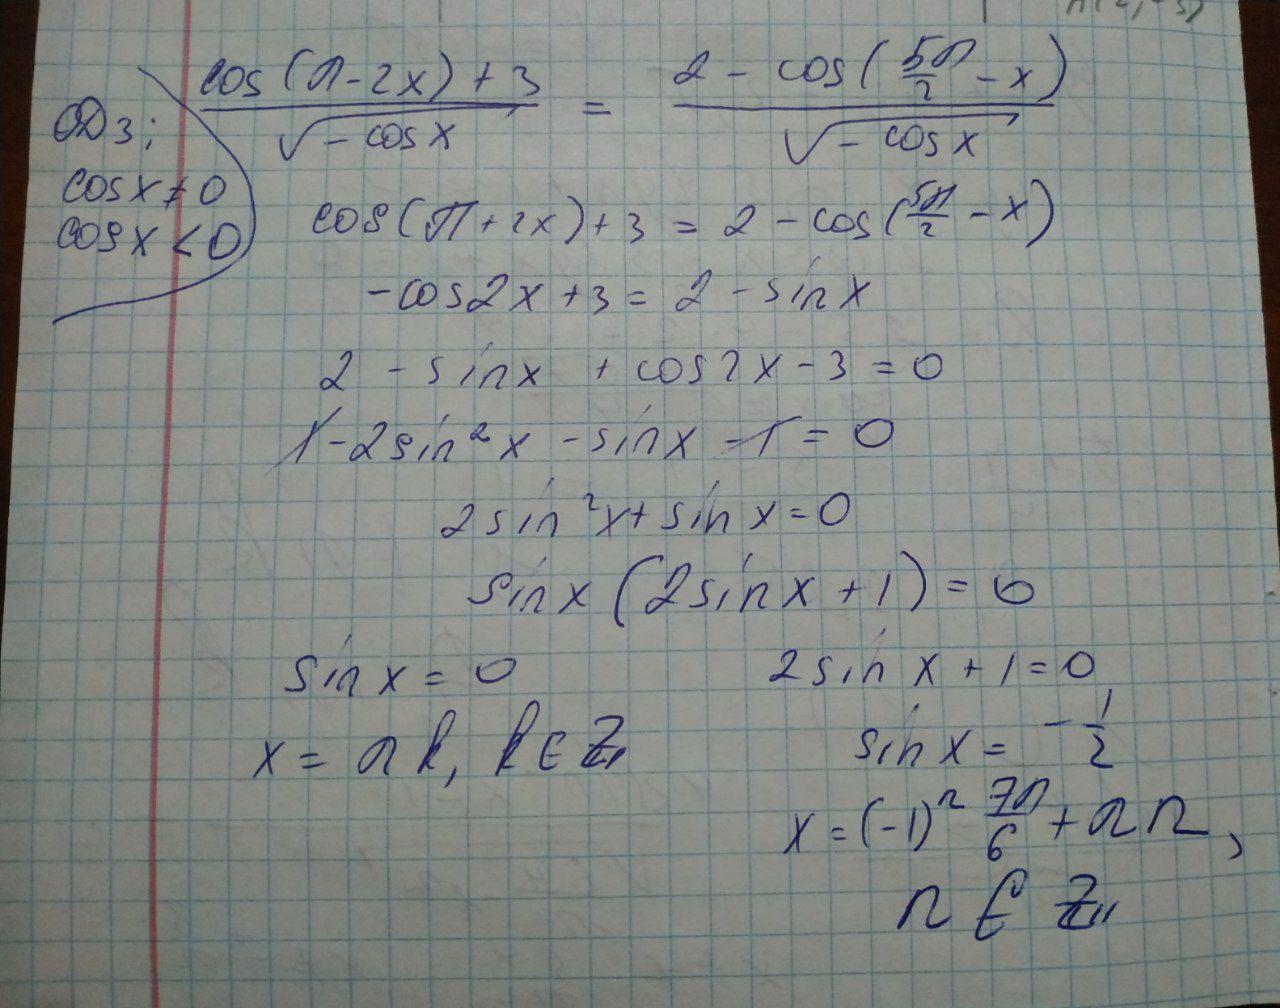 cos(π-2x)+3 / √-cosx = 2 - cos(5π/2 - x) / √-cosx
ОДЗ:
cosx≠0
cosx<0
cos(π+2x)+3 = 2 - cos(5π/2 - x)
-cos2x+3 = 2 - sinx
2 - sinx + cos2x - 3 = 0
1 - 2sin²x - sinx - 1 = 0
2sin²x + sinx = 0
sinx(2sinx + 1) = 0
sinx = 0
x = πk, k∈Z
2sinx + 1 = 0
sinx = -1/2
x = (-1)ⁿ 7π/6 + πn,
n ∈ Z